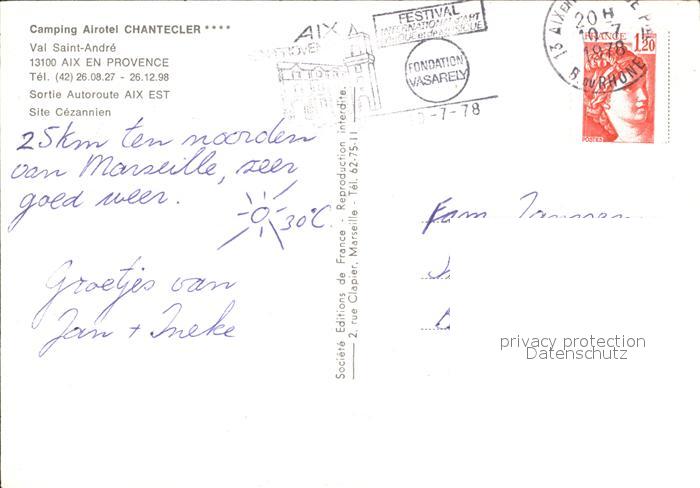 Camping Airotel CHANTECLER ****
Val Saint-André
13100 AIX EN PROVENCE
Tél. (42) 26.08.27 - 26.12.98
Sortie Autoroute AIX EST
Site Cézannien
25km ten noorden
van Marseille, zeer
goed weer.
30°C.
Groetjes van
Jan + Ineke
Société Editions de France - Reproduction interdite.
2, rue Clapier, Marseille - Tél. 62-75-11
AIX
FESTIVAL
INTERNATIONAL D'ART
FONDATION
VASARELY
-7-78
13 AIX EN
20 H
10-7
1978
B. DU RHONE
FRANCE
1,20
POSTES
Fam
privacy protection
Datenschutz